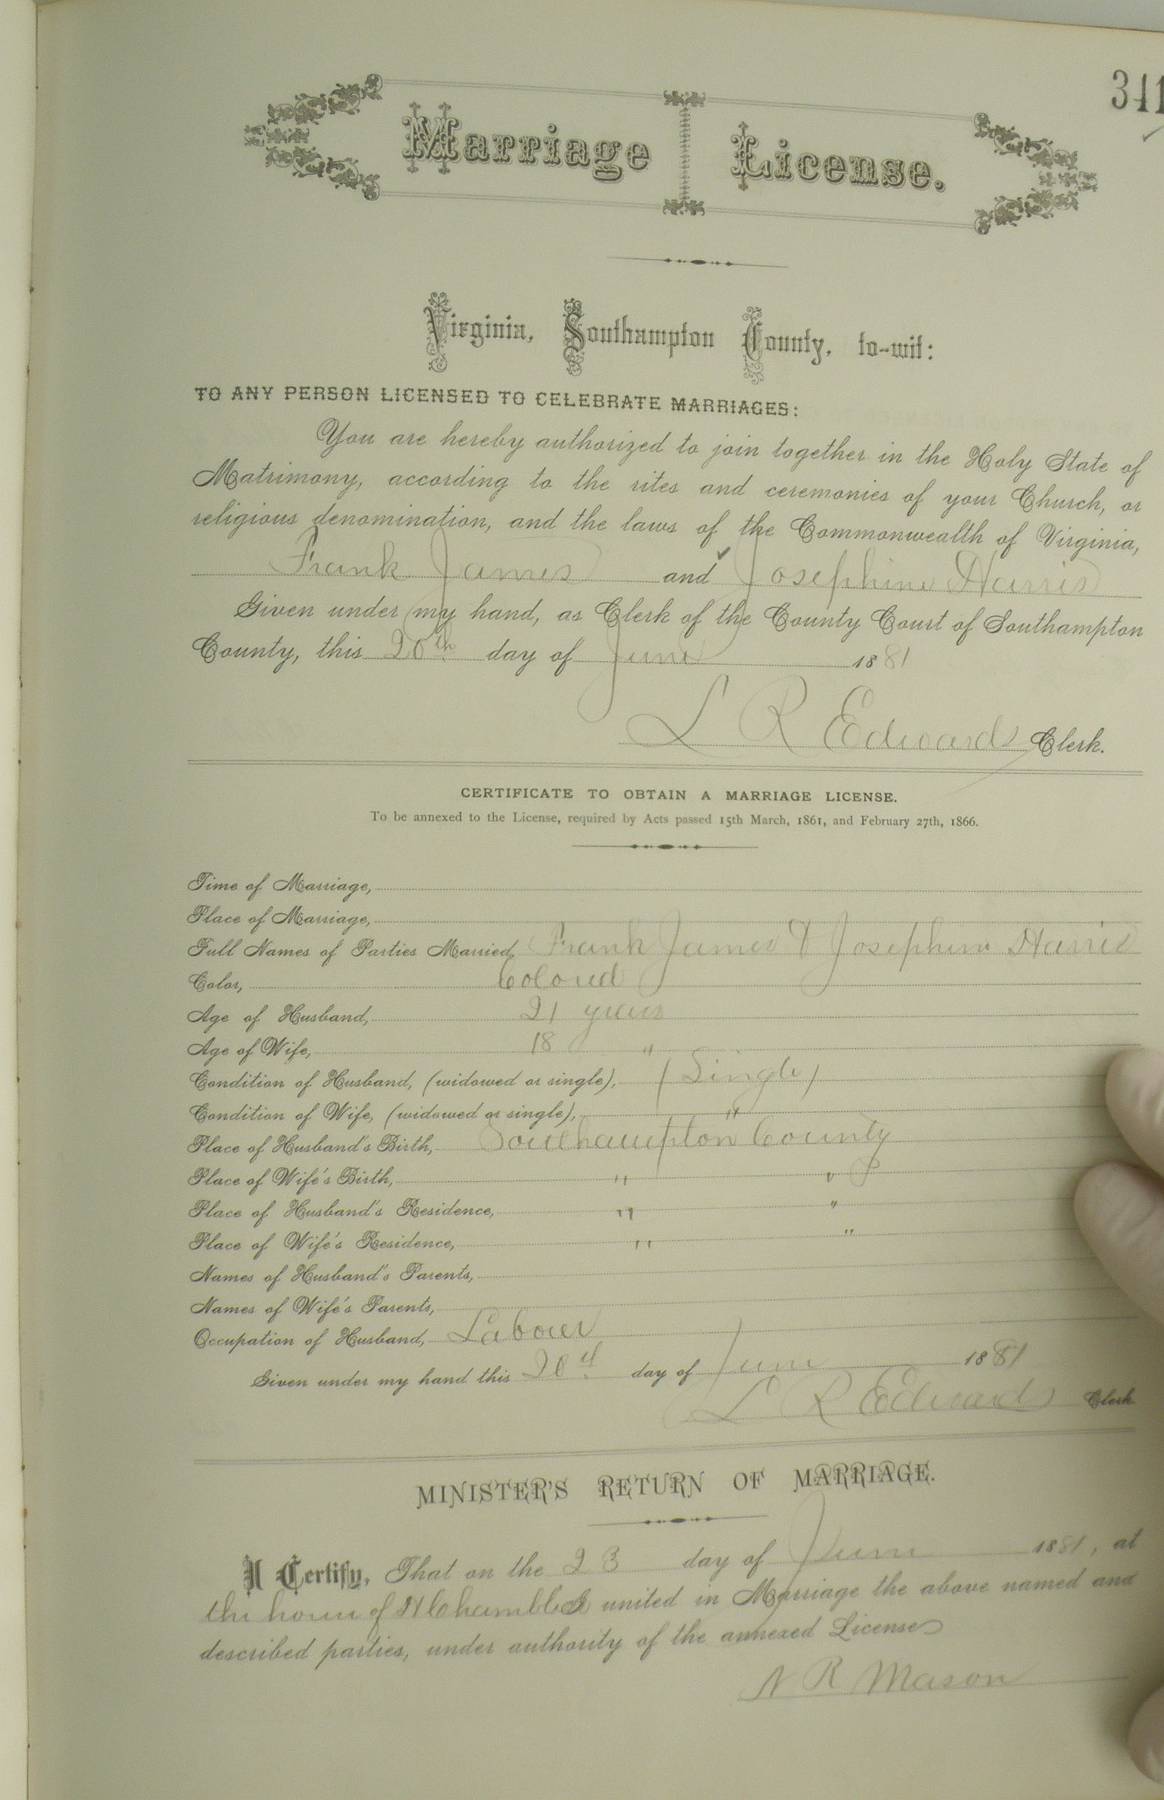 341
Marriage License.
Virginia, Southampton County, to-wit:
TO ANY PERSON LICENSED TO CELEBRATE MARRIAGES:
You are hereby authorized to join together in the Holy State of
Matrimony, according to the rites and ceremonies of your Church, or
religious denomination, and the laws of the Commonwealth of Virginia,
Frank James and Josephine Harris
Given under my hand, as Clerk of the County Court of Southampton
County, this 20th day of June 1881
L R Edwards Clerk.
CERTIFICATE TO OBTAIN A MARRIAGE LICENSE.
To be annexed to the License, required by Acts passed 15th March, 1861, and February 27th, 1866.
Time of Marriage,
Place of Marriage,
Full Names of Parties Married, Frank James & Josephine Harris
Color, Colored
Age of Husband, 21 years
Age of Wife, 18 "
Condition of Husband, (widowed or single), (Single)
Condition of Wife, (widowed or single), "
Place of Husband's Birth, Southampton County
Place of Wife's Birth, " "
Place of Husband's Residence, " "
Place of Wife's Residence, " "
Names of Husband's Parents,
Names of Wife's Parents,
Occupation of Husband, Laborer
Given under my hand this 20th day of June 1881
L R Edwards Clerk
MINISTER'S RETURN OF MARRIAGE.
I Certify, That on the 23 day of June 1881, at
the house of I united in Marriage the above named and
described parties, under authority of the annexed License
N R Mason